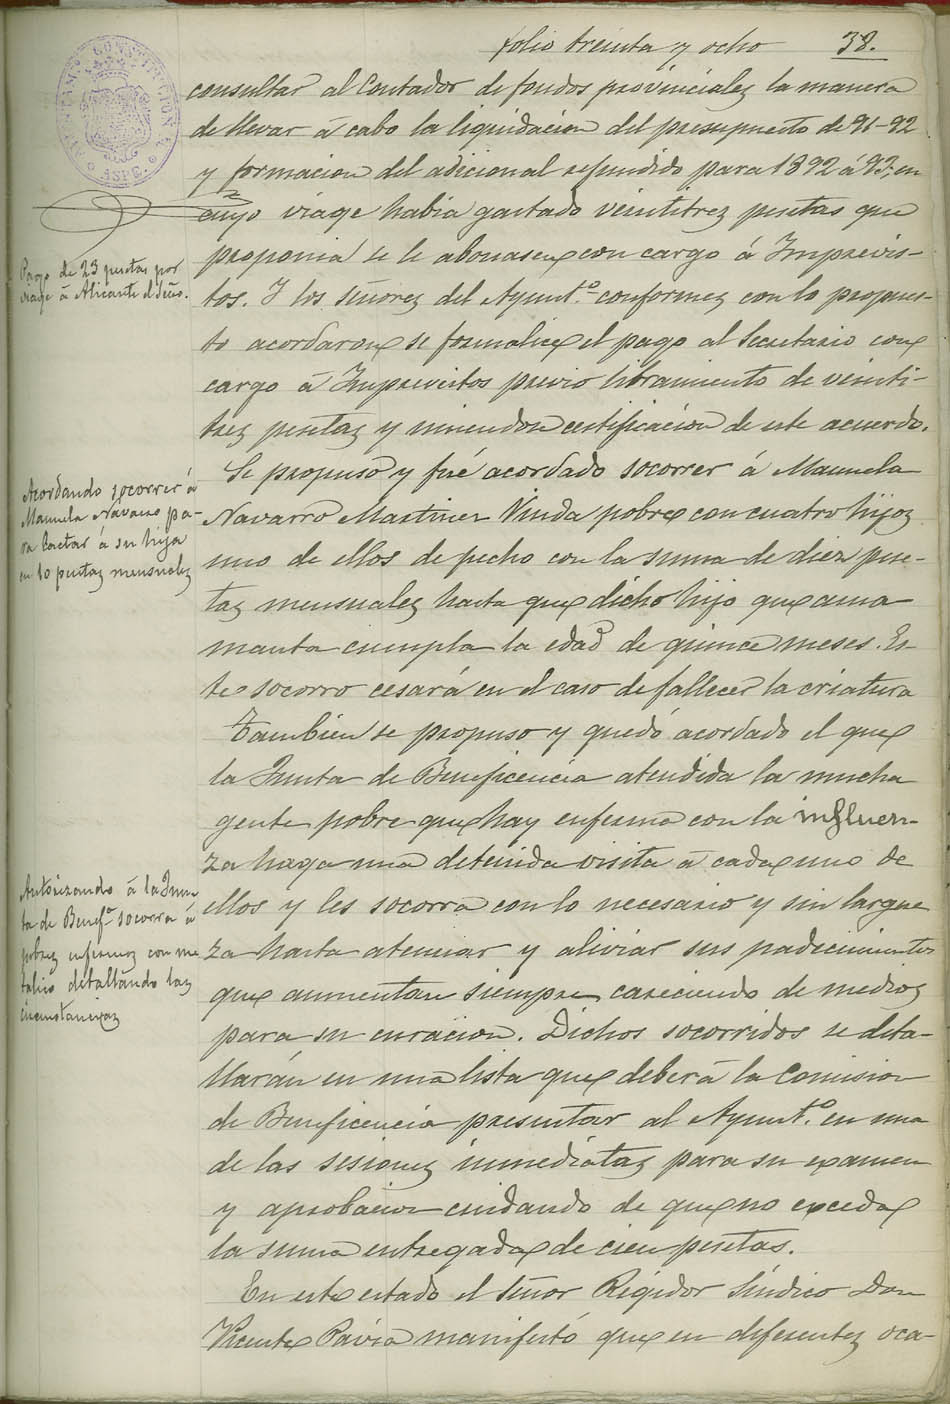 folio treinta y ocho 38.
AYUNTAM.TO CONSTITUCIONAL ASPE.
consultar al Contador de fondos provinciales la manera
de llevar á cabo la liquidacion del presupuesto de 91-92
y formacion del adicional refundido para 1892 á 93, en
cuyo viage habia gastado veintitrez pesetas que
proponia se le abonasen con cargo á Imprevis-
tos. Y los señores del Ayunt.º conformes con lo propues-
to acordaron se formalice el pago al Secretario con
cargo á Imprevistos previo libramiento de veinti-
trez pesetas y uniendose certificacion de este acuerdo.
Se propuso y fué acordado socorrer á Manuela
Navarro Martinez Viuda pobre con cuatro hijos
uno de ellos de pecho con la suma de diez pese-
tas mensuales hasta que dicho hijo que ama
manta cumpla la edad de quince meses. Es-
te socorro cesará en el caso de fallecer la criatura
Tambien se propuso y quedó acordado el que
la Junta de Beneficencia atendida la mucha
gente pobre que hay enferma con la influen-
za haga una detenida visita á cada uno de
ellos y les socorra con lo necesario y sin largue
za hasta atenuar y aliviar sus padecimientos
que aumentan siempre careciendo de medios
para su curacion. Dichos socorridos se deta-
llarán en una lista que deberá la Comision
de Beneficencia presentar al Ayunt.º en una
de las sesiones inmediatas para su examen
y aprobacion cuidando de que no exceda
la suma entregada de cien pesetas.
En este estado el Señor Regidor Síndico Don
Vicente Pávia manifestó que en diferentes oca-
Pago de 23 pesetas por
viage á Alicante el Secño.
Acordando socorrer á
Manuela Navarro pa-
ra lactar á su hija
en 10 pesetas mensuales
Autorizando á la Jun
ta de Benef.ª socorra á
pobres enfermos con me
talico detallando las
circunstancias